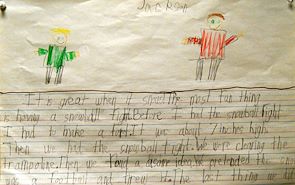 Jackson
It is great when it snows the most fun thing
is having a snowball fight. Before I had the snowball fight
I had to make a fort. It was about 7 inches high.
Then we had the snowball fight. We were clearing the
trampoline. Then we had a idea. We pretended the snow
was a football and threw it. The last thing we did